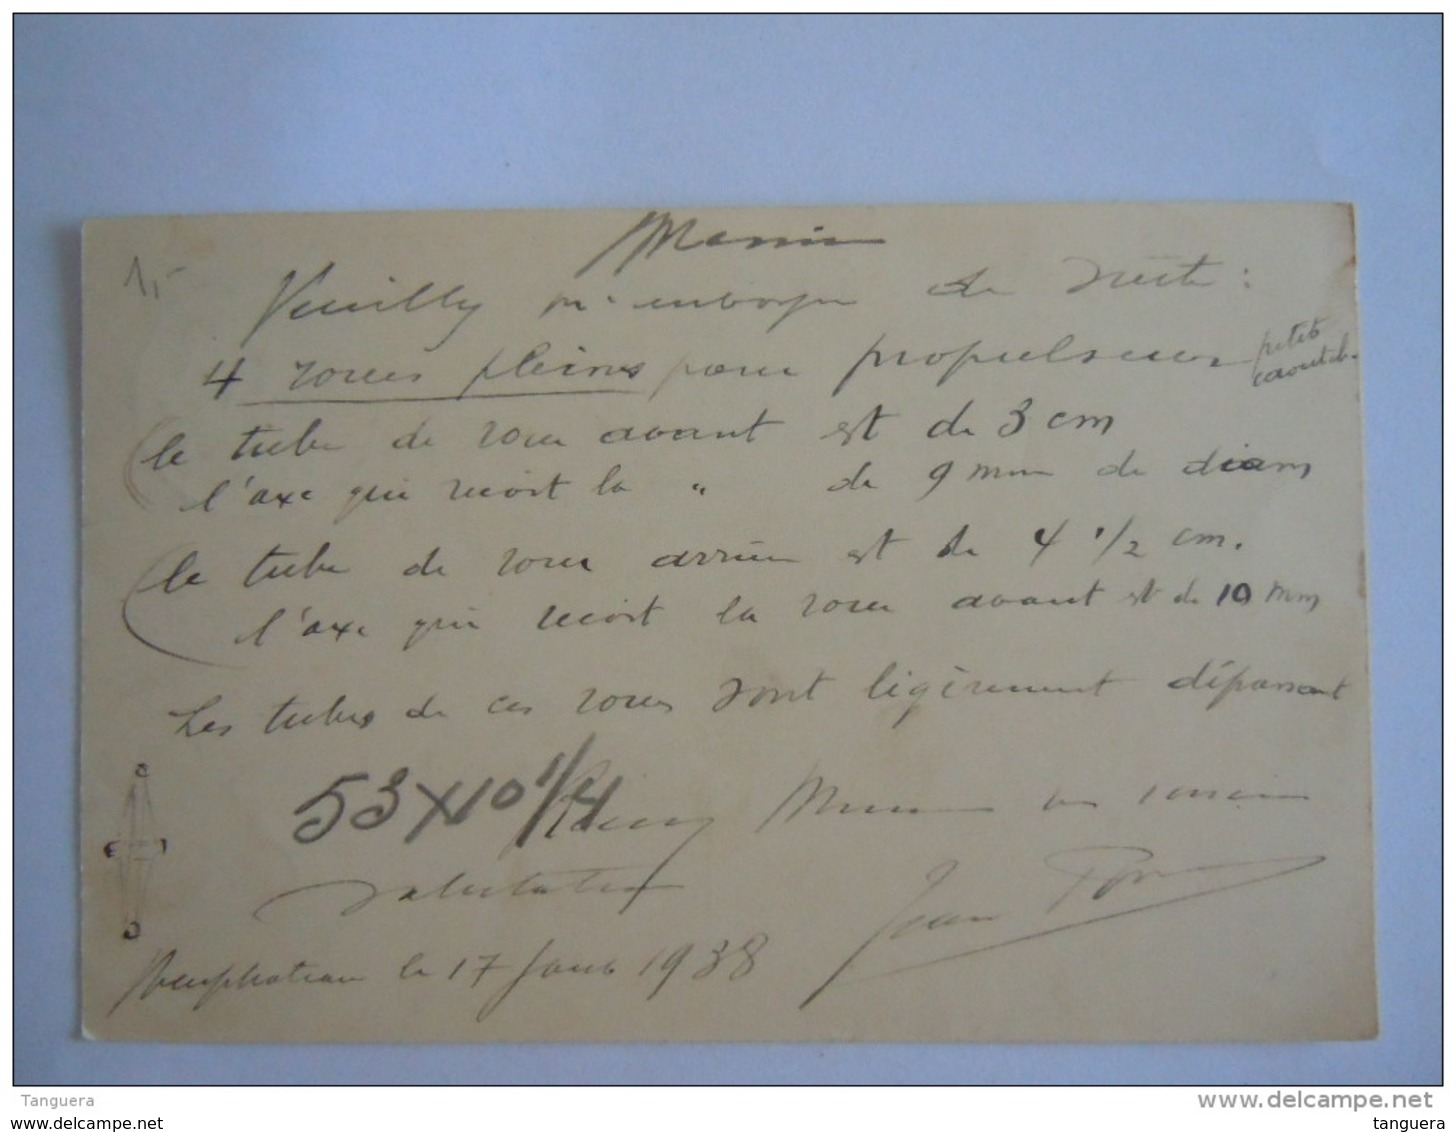 1,-
Veuilly m'
4 roues pleines pour propulseur petits caoutch.
le tube de roue avant est de 3 cm
l'axe qui reçoit la " de 9 mm de diam
le tube de roue arrière est de 4 1/2 cm.
l'axe qui reçoit la roue avant est de 10 mm
Les tubes de ces roues sont légèrement dépassant
53 x 10 1/4
salutations
Jean
Neufchateau le 17 Janv 1938
Tanguera
www.delcampe.net
Tanguera
www.delcampe.net
tanguera